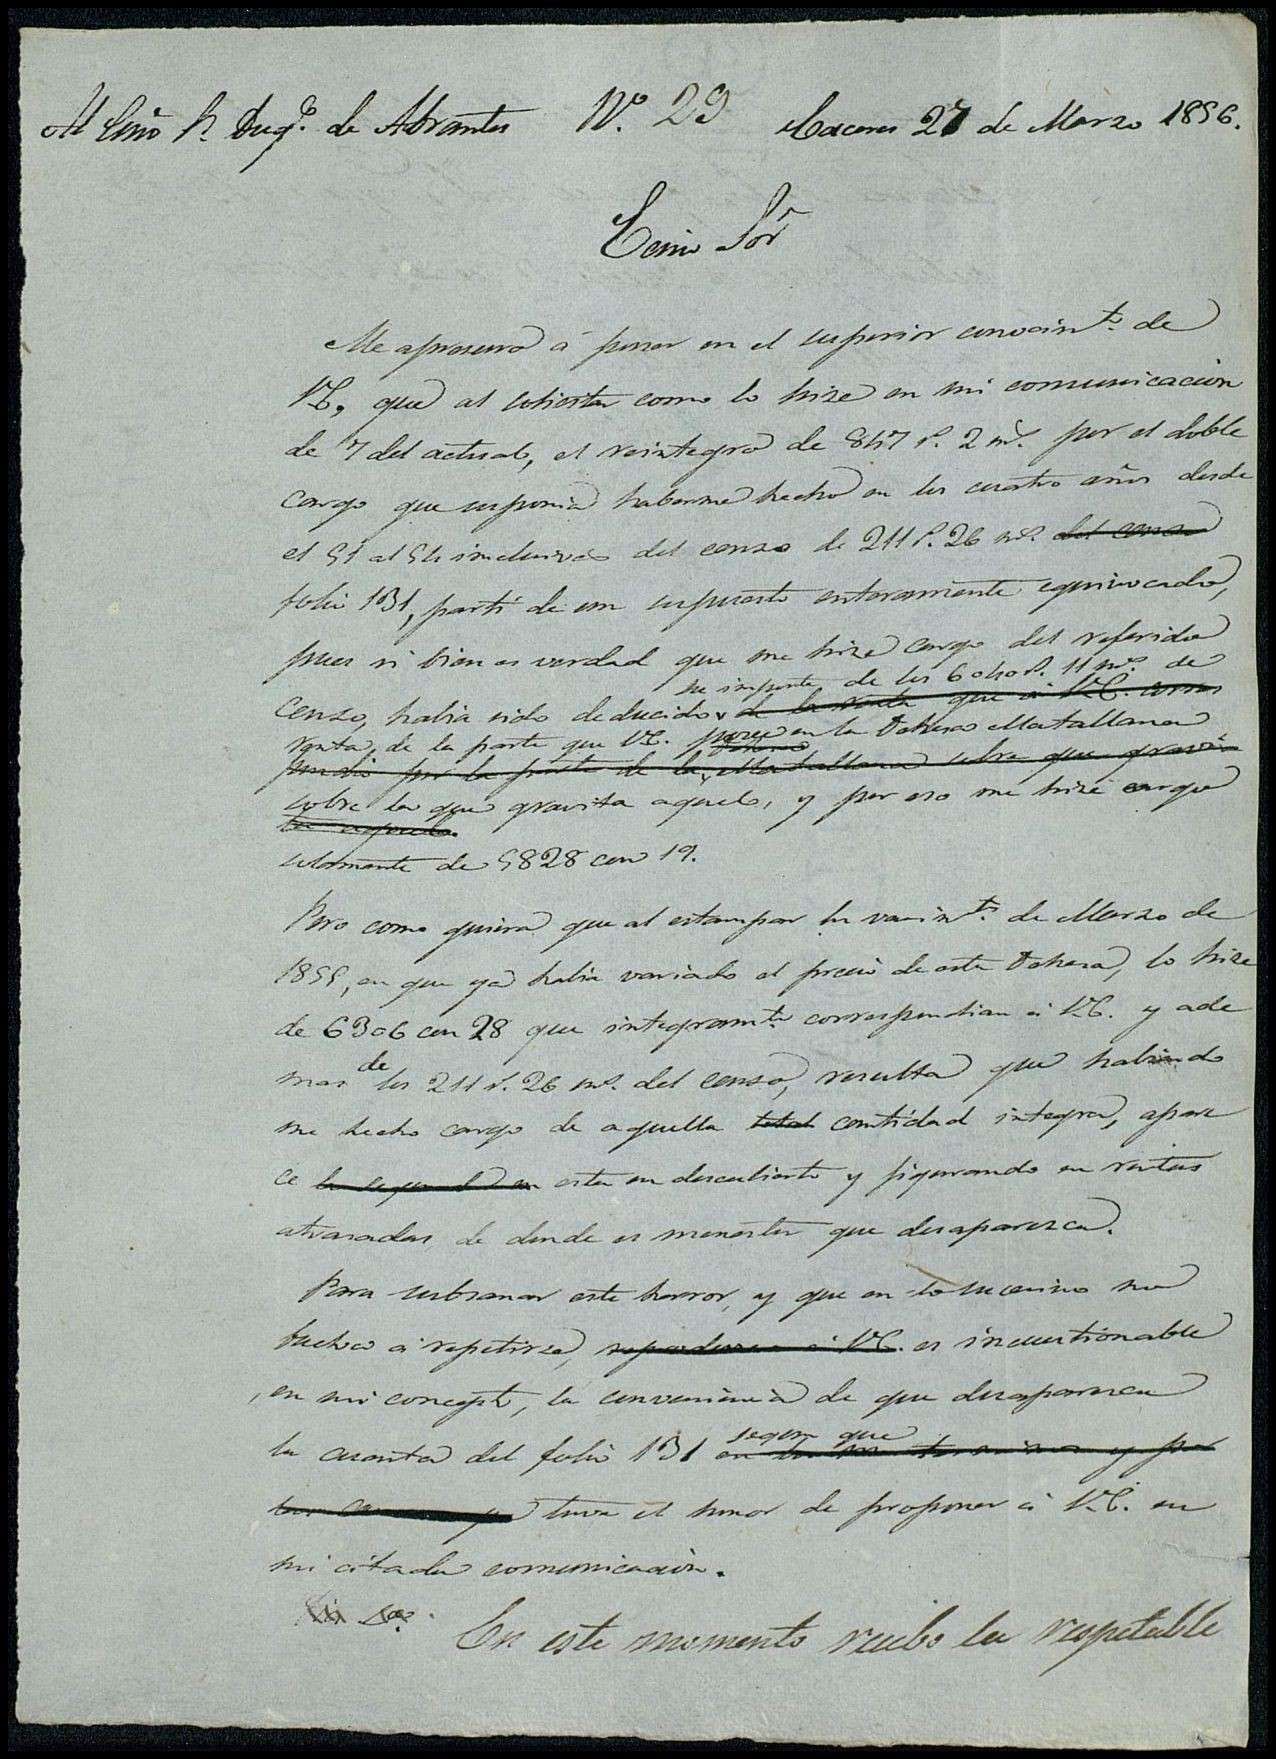 Al Exmo Sr. Duqe. de Abrantes Nº. 29 Caceres 27 de Marzo 1856.
Exmo Sor
Me apresuro á poner en el superior conocimto. de
V.E. que al solicitar como lo hize en mi comunicacion
de 7 del actual, el reintegro de 847 r. 2 ms. por el doble
cargo que suponia haberme hecho en los cuatro años desde
el 51 al 54 inclusives del censo de 211 r. 26 ms. del censo
folio 131, partí de un supuesto enteramente equivocado,
pues si bien es verdad que me hize cargo del referido
su importe de los 6040 r. 11 ms. de
censo, habia sido deducido de la renta que á V.E. corres
renta, de la parte que V.E. posee en la Dehesa Matallana
pondió por la parte de la Matallana sobre que gravi
sobre la que gravita aquel, y por eso me hize cargo
ta aquel
solamente de 5828 con 19.
Pero como quiera que al estampar los vencimtos. de Marzo de
1855, en que ya habia variado el precio de esta Dehesa, lo hize
de 6306 con 28 que integramte. correspondian á V.E. y ade
mas de los 211 r. 26 ms. del censo, resulta que habiendo
me hecho cargo de aquella total cantidad integra, apare
ce la segunda en esta en descubierto y figurando en rentas
atrasadas de donde es menester que desaparezca.
Para subsanar este herror, y que en lo sucesivo no
buelva á repetirse, á V.E. es incuestionable
, en mi concepto, la conveniencia de que desaparezca
la cuenta del folio 131 segun que en los terminos y por
las ya tuve el honor de proponer á V.E. en
mi citada comunicacion.
En este momento recibo la respetable